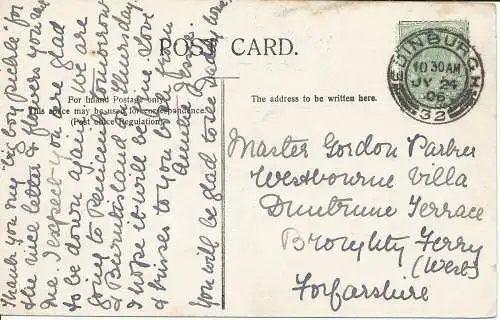 POST CARD.
For Inland Postage only
This space may be used for correspondence.
(Post Office Regulation).
The address to be written here.
EDINBURGH
10 30 AM
JY 24
06
32
Thank you my "big boy Pickle" for
the nice letter & flowers you sent
me. I expect you were glad
to be down again. We are
going to Penicuik tomorrow
& Burntisland on Thursday.
I hope it will be fine. Love
& kisses to you both from
Auntie Jessie.
You will be glad to see Daddy here.
Master Gordon Parker
Westbourne Villa
Duntrune Terrace
Broughty Ferry
(West)
Forfarshire